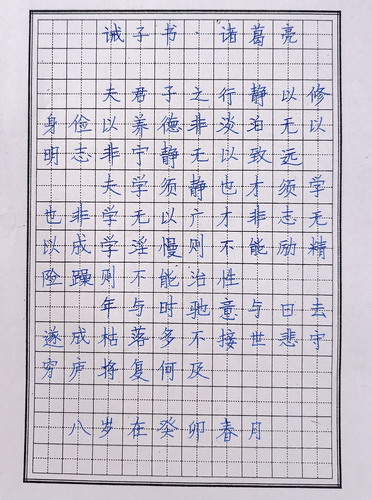 诫子书·诸葛亮
夫君子之行静以修
身俭以养德非淡泊无以
明志非宁静无以致远
夫学须静也才须学
也非学无以广才非志无
以成学淫慢则不能励精
险躁则不能治性
年与时驰意与日去
遂成枯落多不接世悲守
穷庐将复何及
八岁在癸卯春月